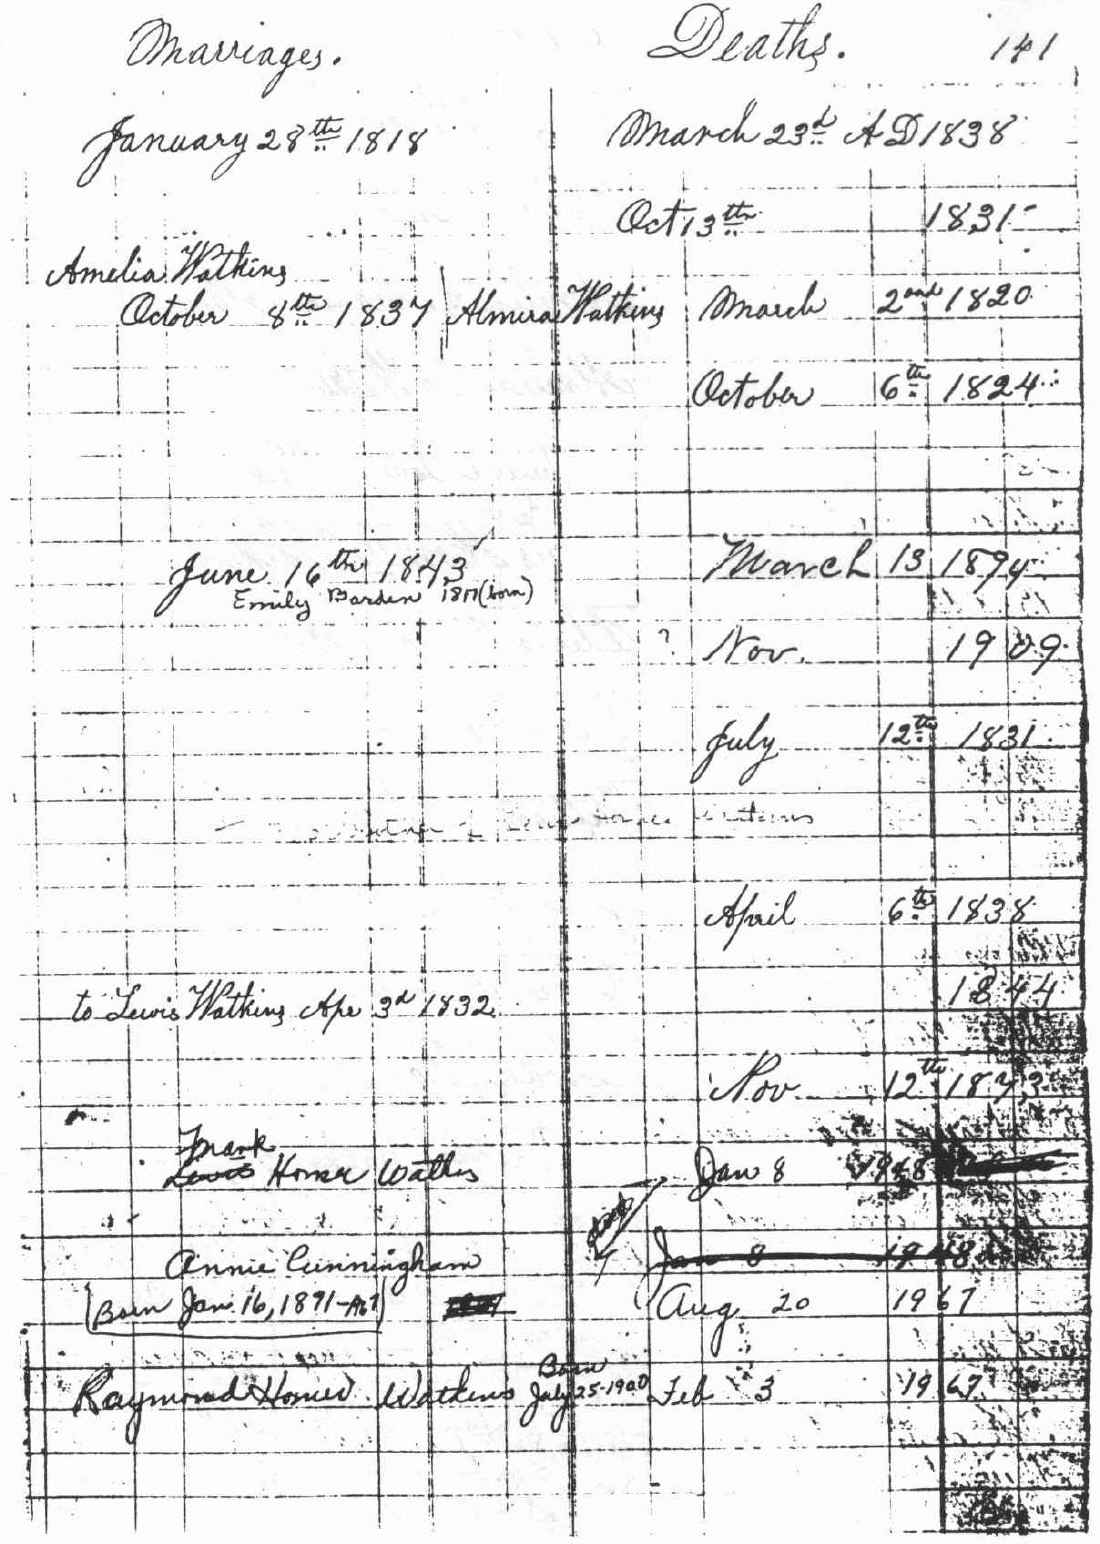 Marriages. Deaths. 141
January 28th 1818 March 23d A D 1838
Oct 13th 1831
Amelia Watkins
October 8th 1837 Almira Watkins March 2nd 1820
October 6th 1824
June 16th 1843 March 13 1894
Emily Barden (born)
? Nov. 1909
July 12th 1831
of
April 6th 1838
1844
to Lewis Watkins Apr 3d 1832
Nov. 12th 1873
Frank
Lewis Homer Watkins Jan 8 1948
Annie Cunningham Jan 8 1948
(Born Jan. 16, 1871 Aug 20 1967
Born
Raymond Homer Watkins July 25-1900 Feb 3 1967